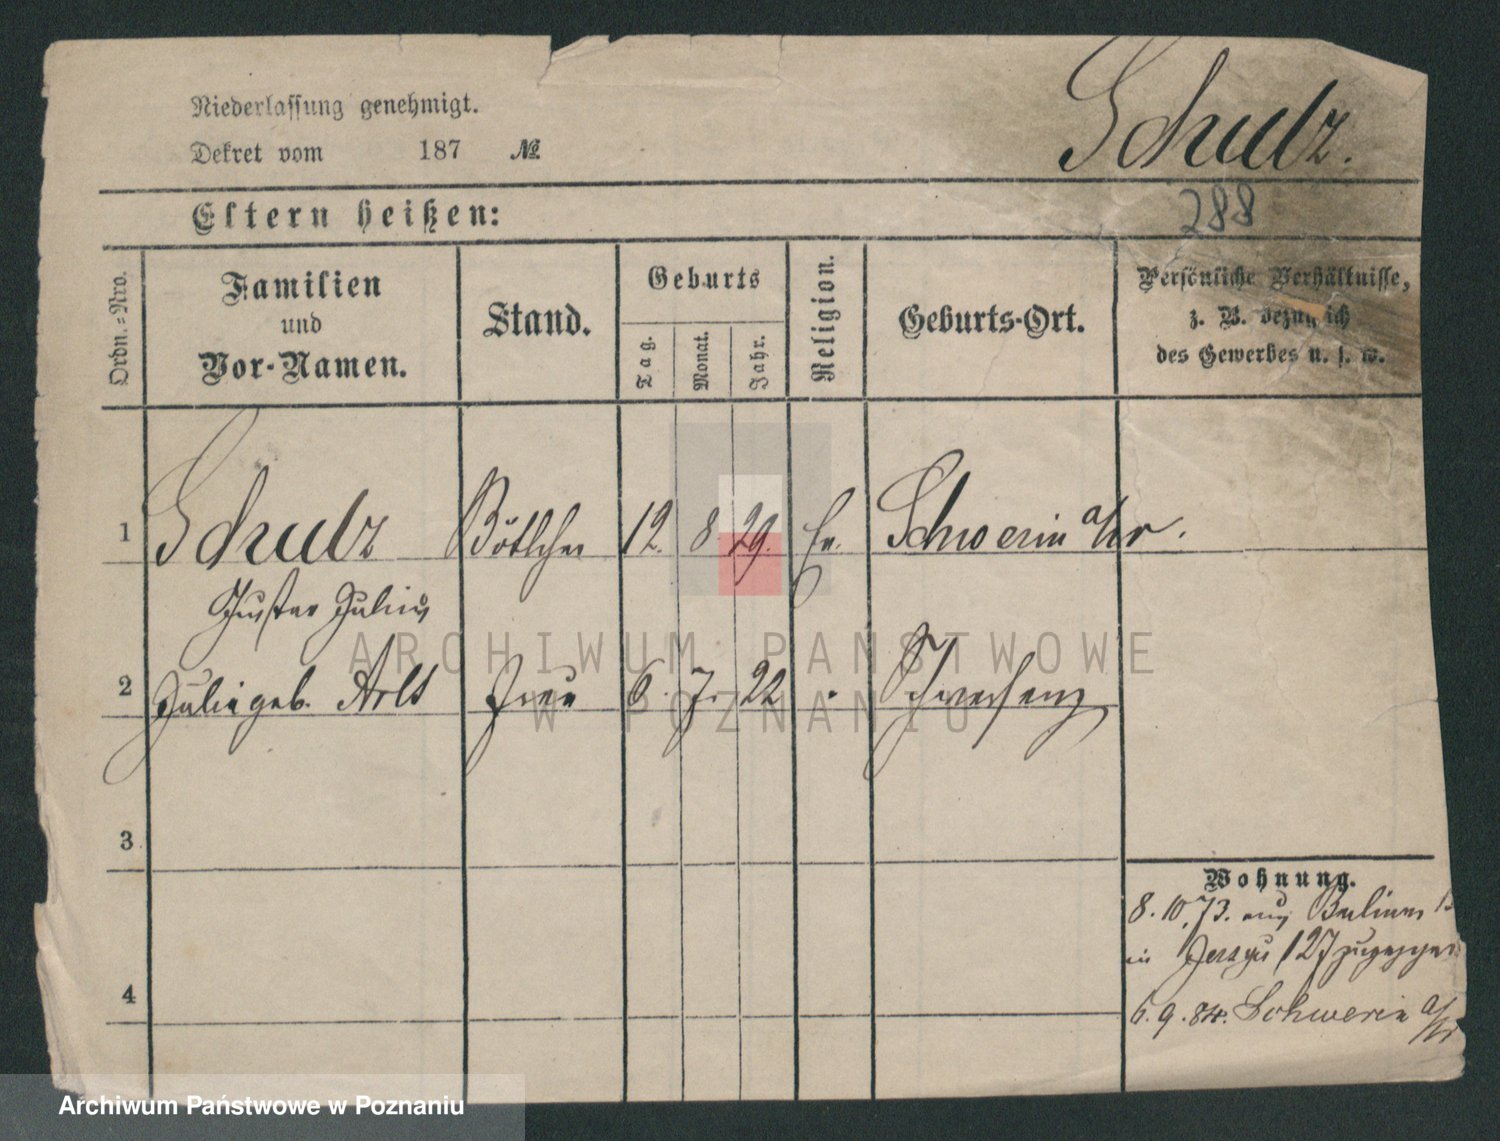 Niederlassung genehmigt.
Dekret vom 187 №
Schulz.
Eltern heißen:
288
Ordn.-Nro.
Familien
und
Vor-Namen.
Stand.
Geburts
Tag.
Monat.
Jahr.
Religion.
Geburts-Ort.
Persönliche Verhältnisse,
z. B. bezüglich
des Gewerbes u. s. w.
1 Schulz Böttcher 12. 8 29. Ev. Schwerin a/W.
Gustav Julius
2 Julie geb. Arlt Frau 6. 7. 22 Schwersenz
3
4
Wohnung.
8.10.73. aus Berliner
in Jerzyce 127 zugezogen
6.9.84. Schwerin a/W
ARCHIWUM PAŃSTWOWE
W POZNANIU
Archiwum Państwowe w Poznaniu